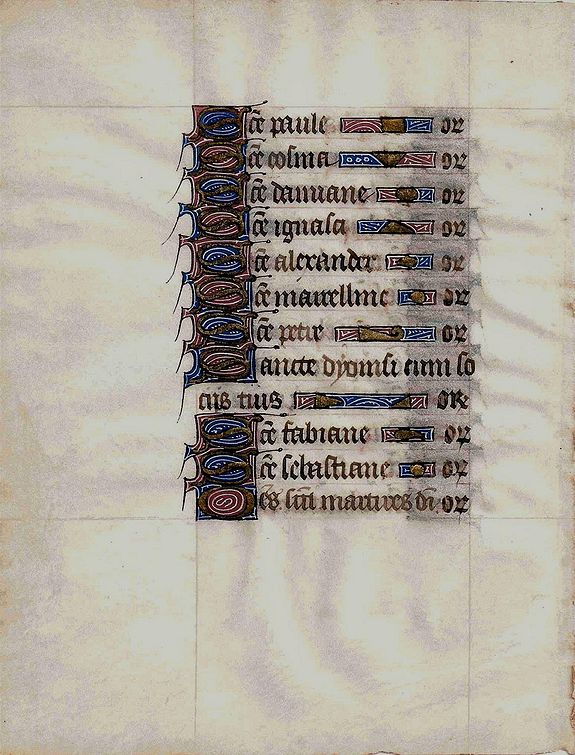 Sce paule or
Sce cosma or
Sce damiane or
Sce ignasci or
Sce alexander or
Sce marcelline or
Sce petre or
Sancte dyonisi cum so
ciis tuis ore
Sce fabiane or
Sce sebastiane or
Oes sci martires dei or